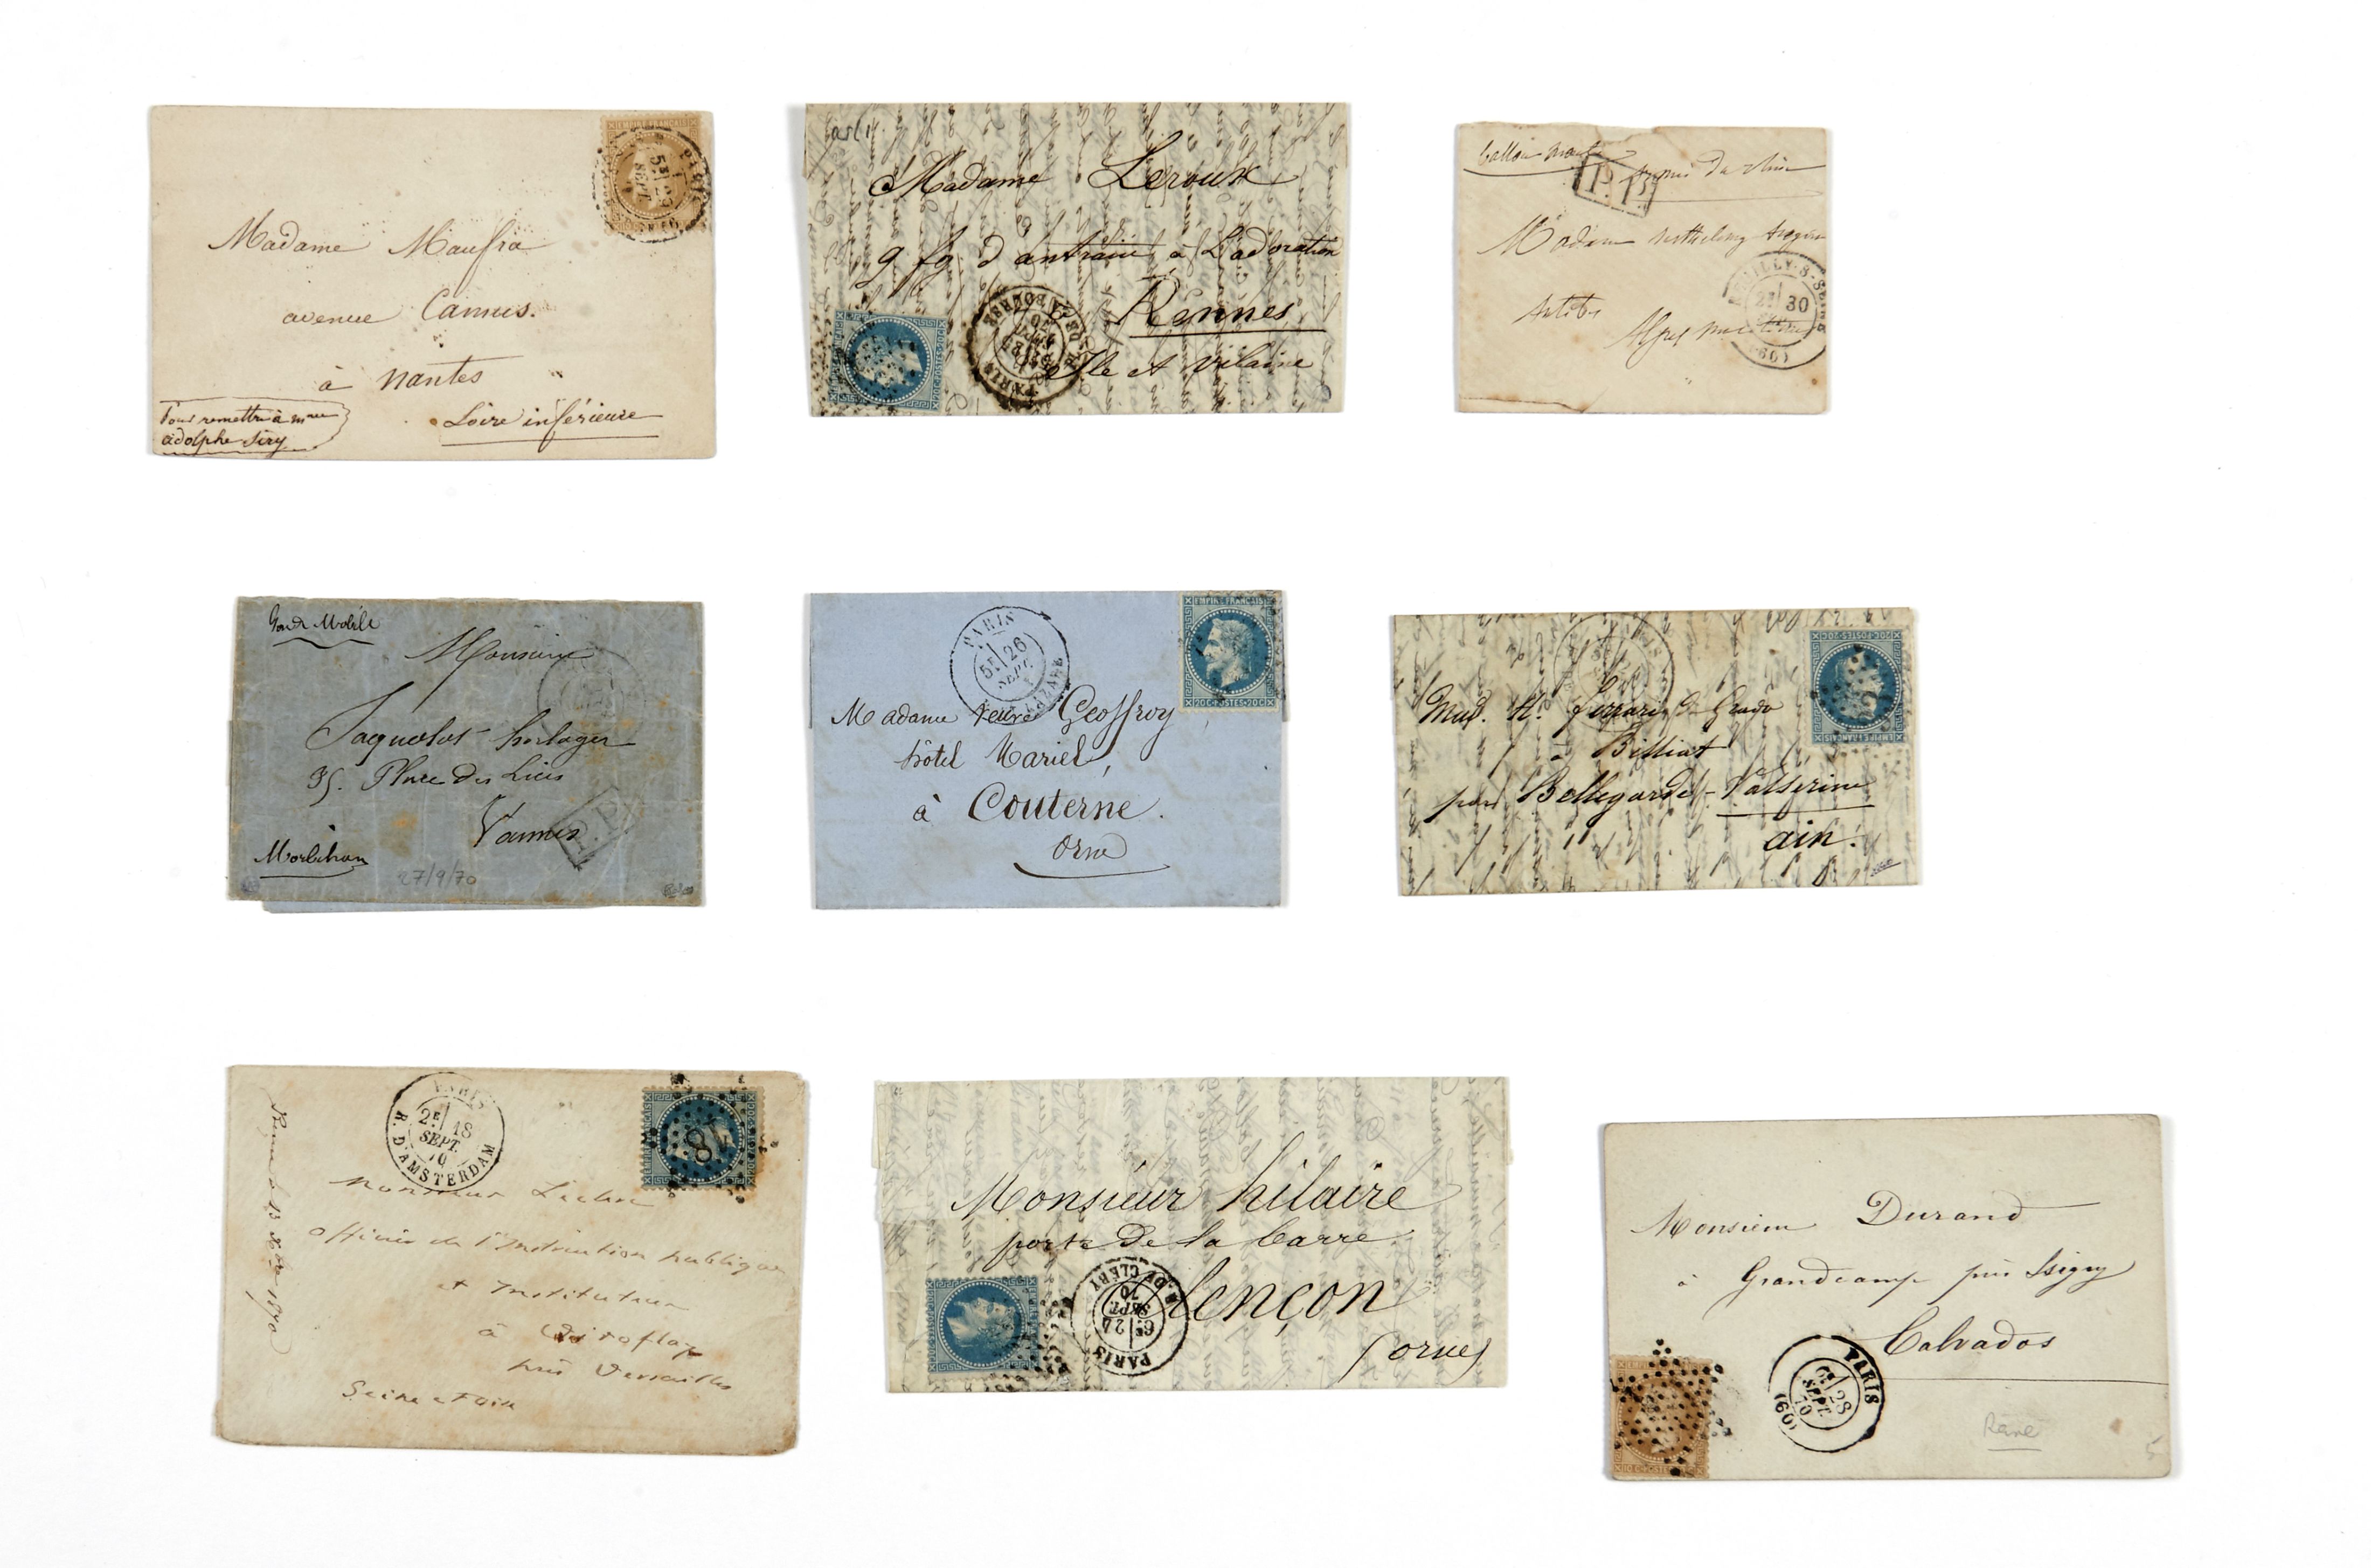 EMPIRE FRANÇAIS
PARIS
5E 29
SEPT.
(60)
Madame Maufra
avenue Camus.
à Nantes
Loire inférieure
Pour remettre à Mme
adolphe Séry
Madame Leroux
9 fg d'antrain à L'adoration
Rennes
Ille et Vilaine
PARIS
PL. DE LA BOURSE
SEPT.
70
ballon monté
P.P.
Madame
NEUILLY-S-SEINE
2E 30
(60)
Antibes
Garde Mobile
Monsieur
Jaquolot horloger
35. Place des Lices
Vannes
P.P.
Morbihan
27/9/70
PARIS
5E 26
SEPT.
EMPIRE FRANÇAIS
20C POSTES 20C
Madame veuve Geoffroy
hôtel Mariel,
à Couterne.
Orne
20C POSTES 20C
EMPIRE FRANÇAIS
Mad. H. Ferrari
à Billiat
par Bellegarde-Valserine
ain.
PARIS
2E 18
SEPT.
70
R. D'AMSTERDAM
18
Monsieur Leclerc
officier de l'Instruction publique
et Instituteur
à Viroflay
près Versailles
Seine et Oise
Monsieur hilaire
porte de la barre
Alençon
(orne)
PARIS
6E 24
SEPT.
70
R. DE CLERY
Monsieur Durand
à Grandcamp près Isigny
Calvados
PARIS
6E 28
SEPT.
70
(60)
Rare
5